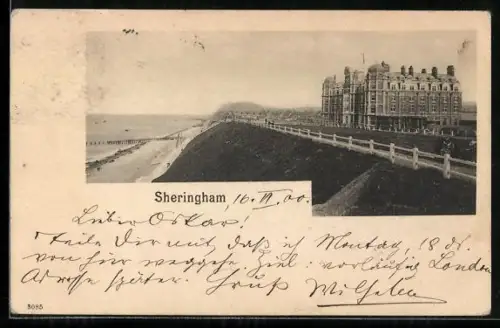 Sheringham
Sheringham, 16. VI. 00.
Lieber Oskar!
Teile Dir mit daß ich Montag, 18 ds.
von hier weggehe Ziel: vorläufig London
Adresse später. Gruß Wilhelm
3085